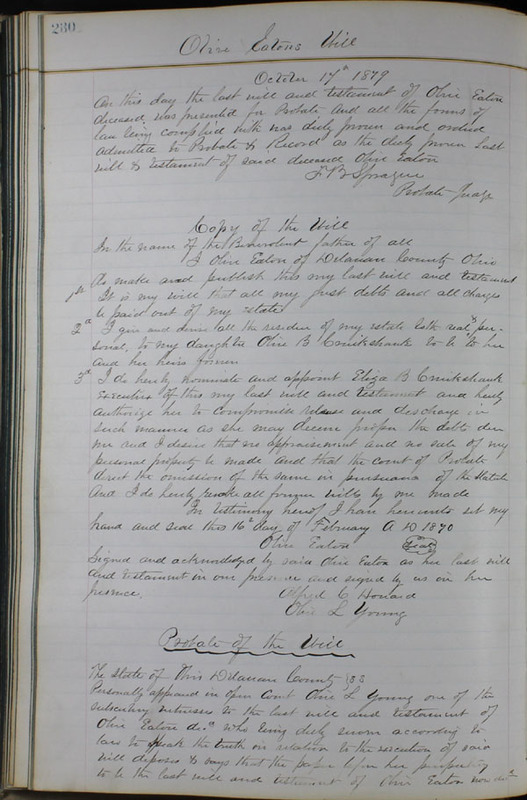 280
Olive Eatons Will
October 17th 1879
On this day the last will and testament of Olive Eaton
deceased was presented for Probate and all the forms of
law being complied with was duly proven and ordered
admitted to Probate & Record as the duly proven Last
will & testament of said deceased Olive Eaton
F B Sprague
Probate Judge
Copy of the Will
In the name of the Benevolent father of all
I Olive Eaton of Delaware County Ohio
do make and publish this my last will and testament
1st It is my will that all my just debts and all charges
be paid out of my estate
2d I give and devise all the residue of my estate both real & per-
sonal, to my daughter Olive B Cruikshank to be to her
and her heirs forever
3d I do hereby nominate and appoint Eliza B Cruikshank
Executrix of this my last will and testament and hereby
authorize her to compromise release and discharge in
such manner as she may deem proper the debts due
me and I desire that no appraisement and no sale of my
personal property be made and that the court of Probate
direct the omission of the same in pursuance of the Statute
And I do hereby revoke all former wills by me made
In testimony hereof I have hereunto set my
hand and seal this 16th day of February A D 1870
Olive Eaton Seal
Signed and acknowledged by said Olive Eaton as her last will
and testament in our presence and signed by us in her
presence.
C Howard
Olive L Young
Probate of the Will
The State of Ohio Delaware County } SS
Personally appeared in open Court Olive L Young one of the
subscribing witnesses to the last will and testament of
Olive Eaton decd who being duly sworn according to
law to speak the truth in relation to the execution of said
will deposes & says that the paper before her purporting
to be the last will and testament of Olive Eaton now decd